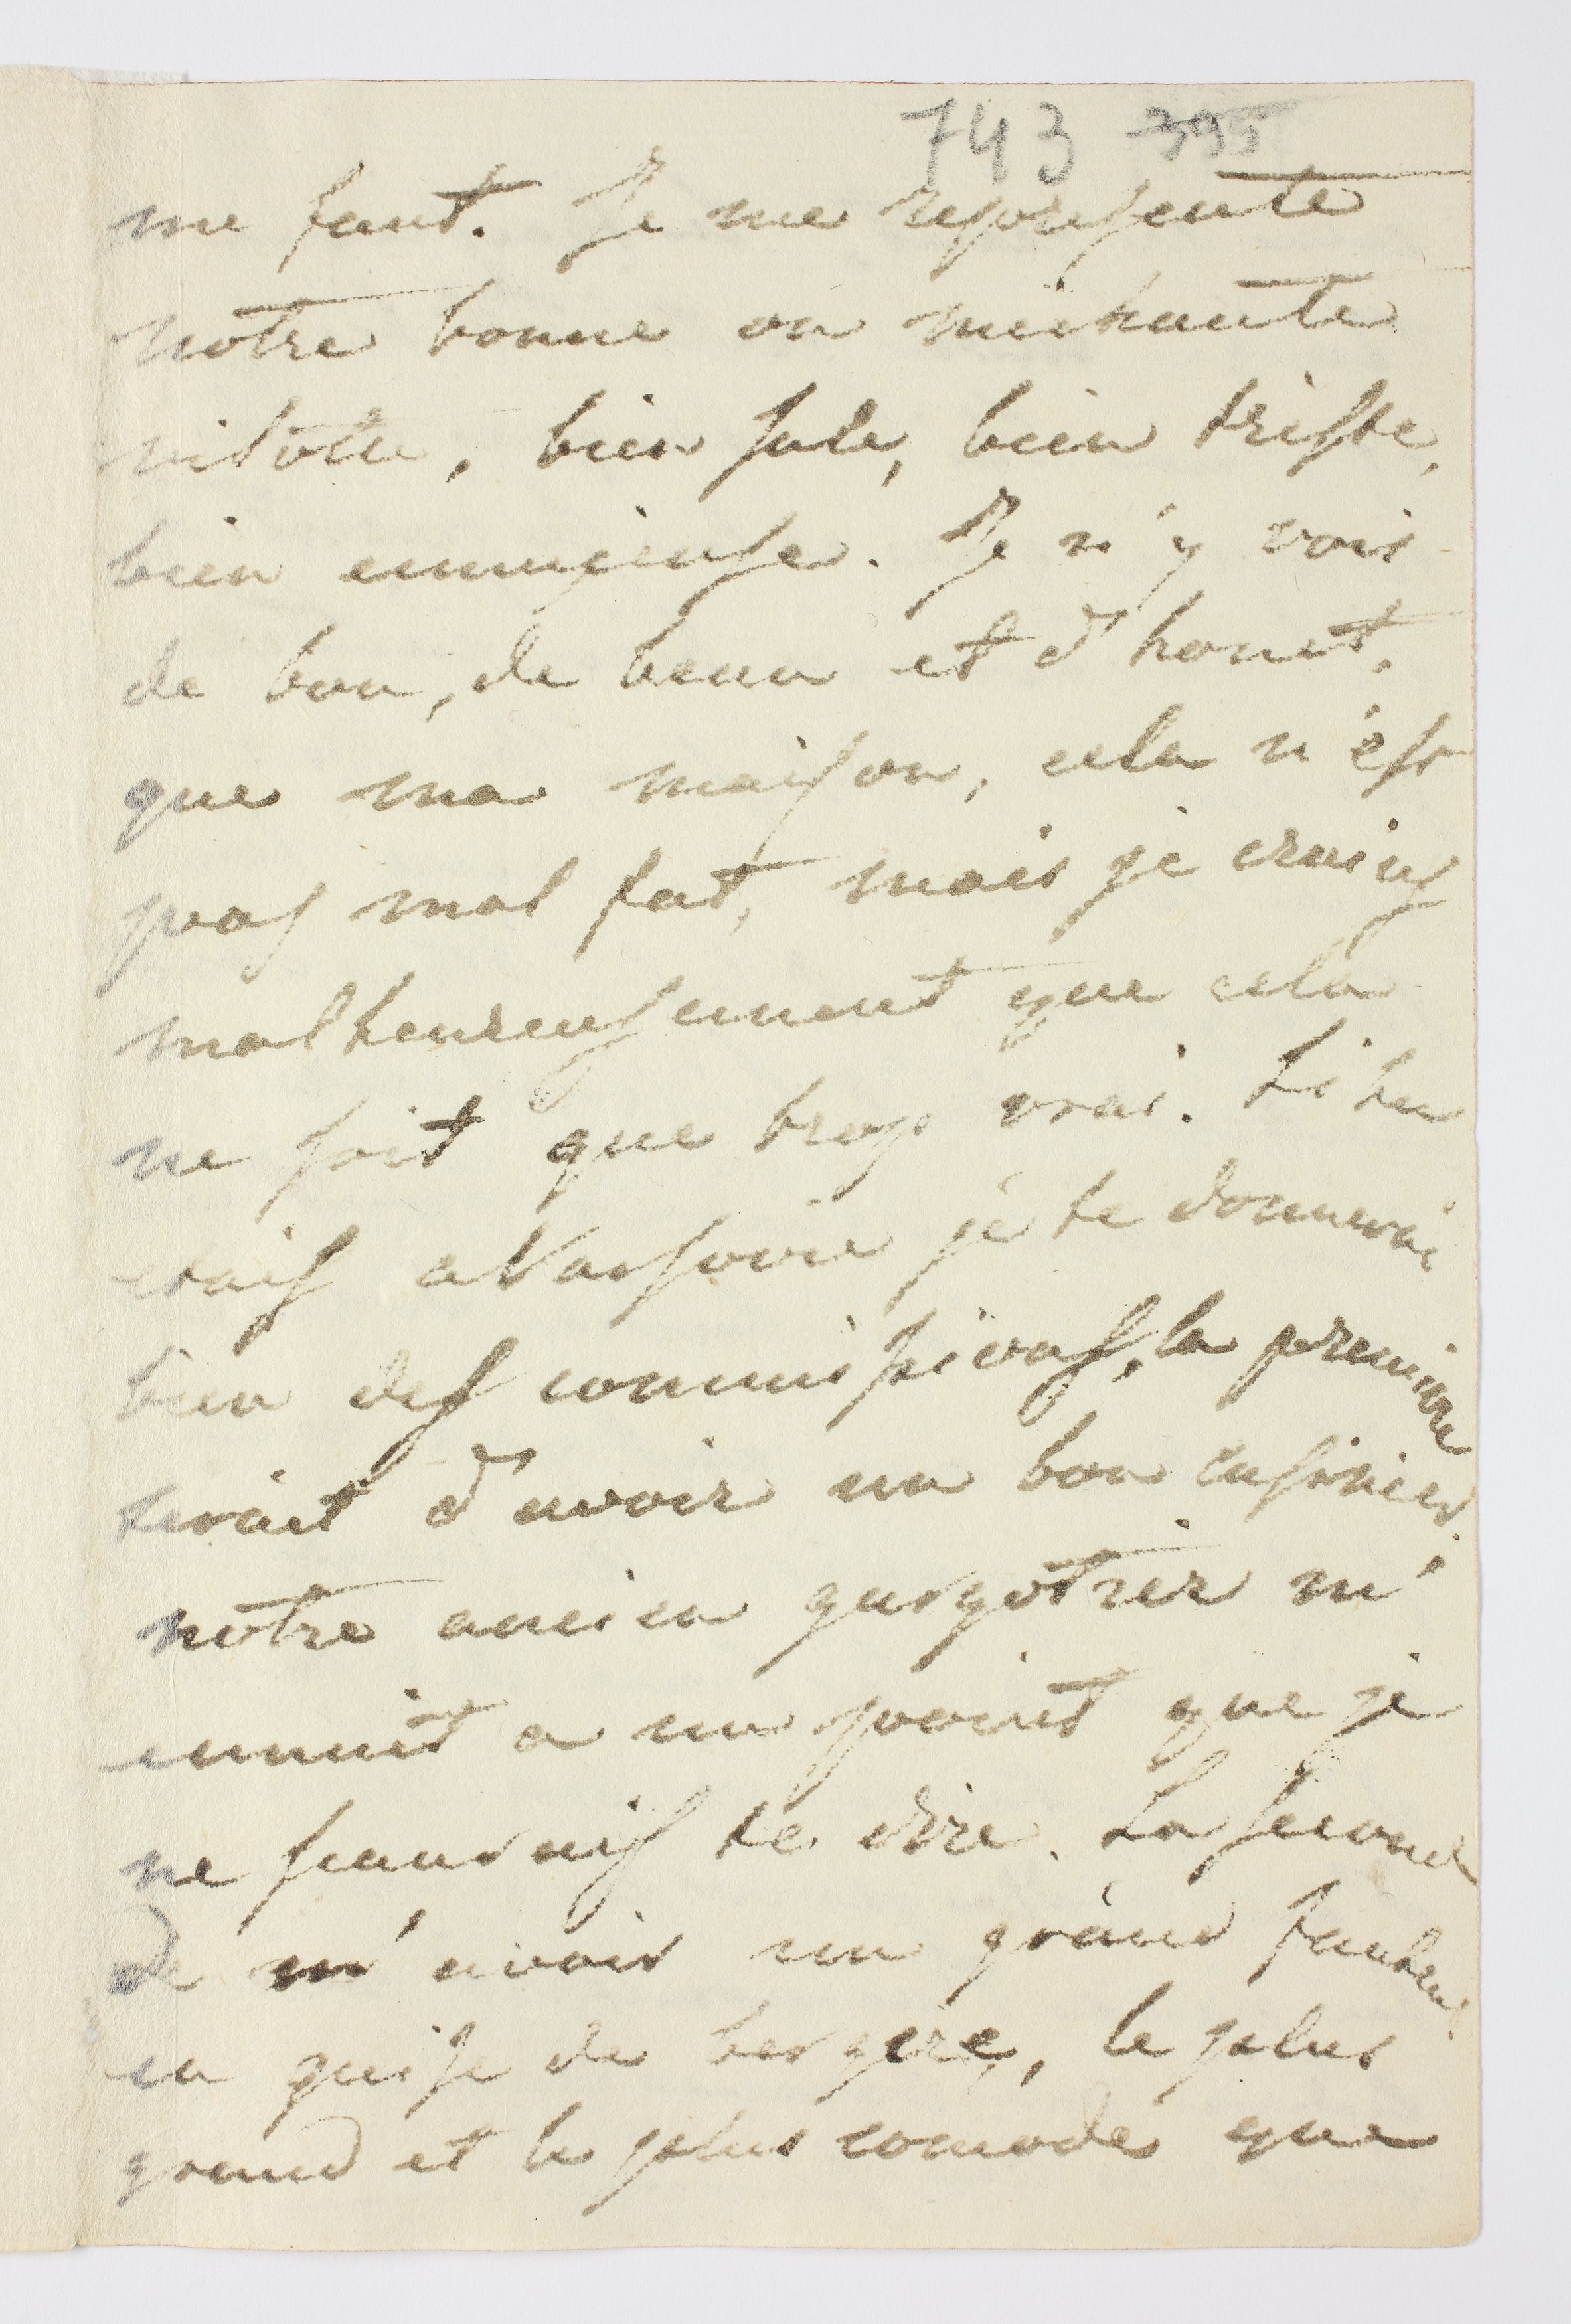 743 395
me faut. Je me represente
notre bonne ou mechante
bien sale, bien triste,
bien ennuyeuse. Je n'y vois
de bon, de beau et d'honet.
que ma maison, cela n'est
pas mal fat, mais je crains
malheureusement que cela
ne soit que trop vrai. Si tu
etais a Varsovie je te donnerais
bien des commissions, la premiere
serait d'avoir un bon cusinier.
notre ancien m'
ennuit a un point que je
ne scaurais te dire. La seconde
de m'avoir un grand fauteuil
en guise de bergere, le plus
grand et le plus comode que